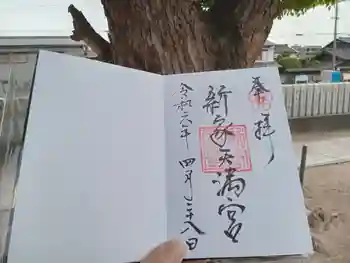 奉拝
新家天満宮
令和六年四月二十八日